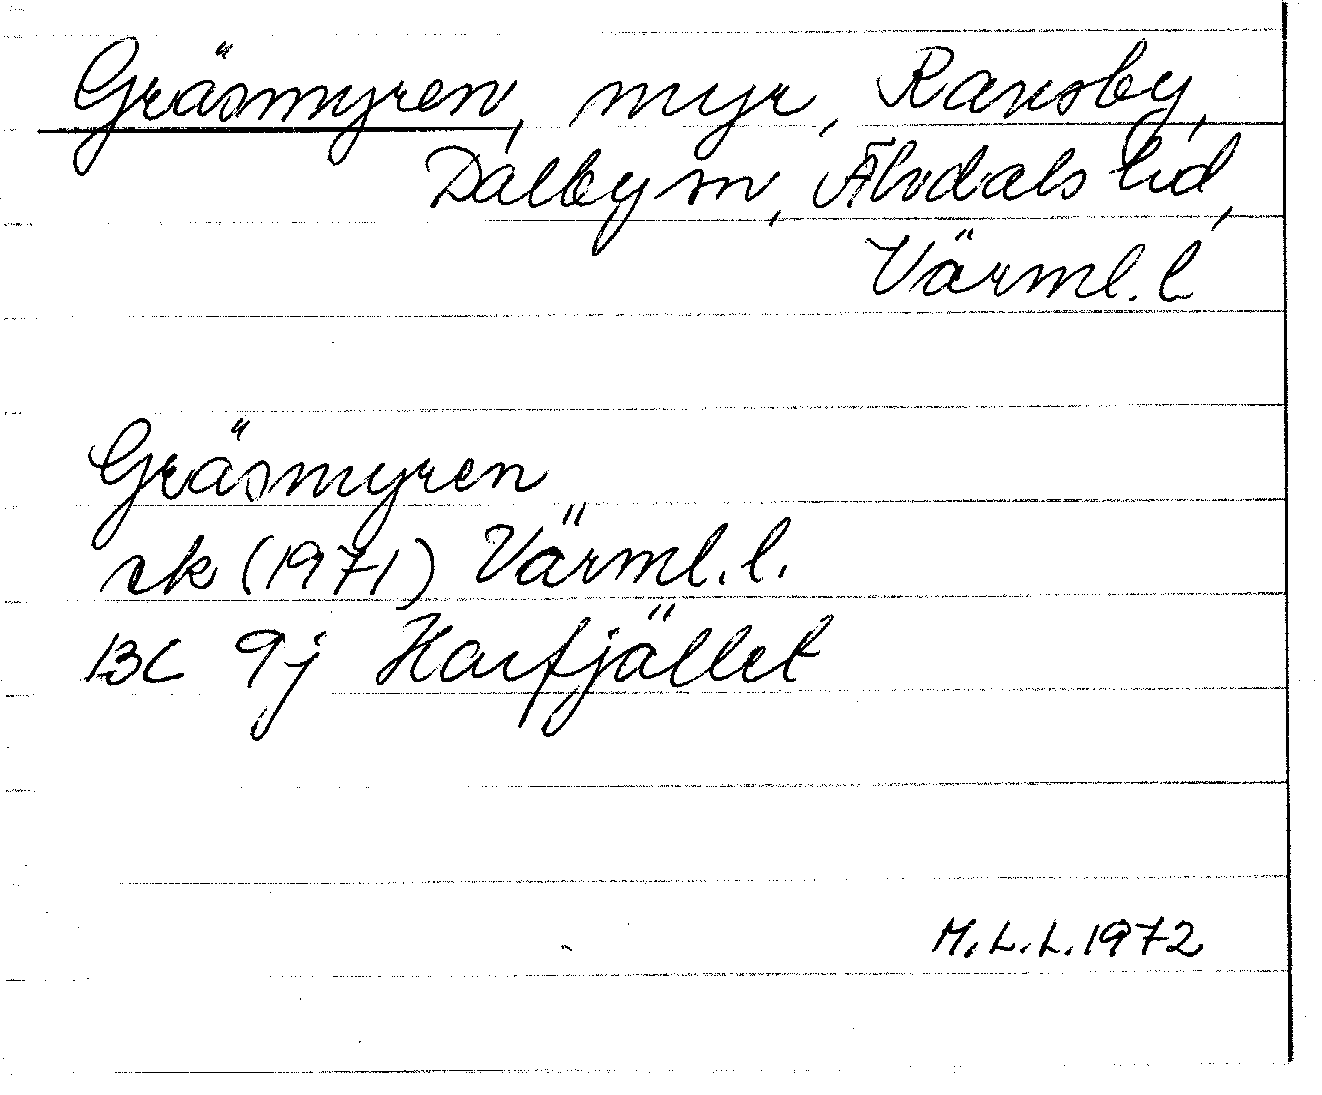 Gräsmyren, myr, Ransby,
Dalby sn, Älvdals hd,
Värml. l
Gräsmyren
rk (1971) Värml. l.
13C 9j Harfjället
M.L.L. 1972